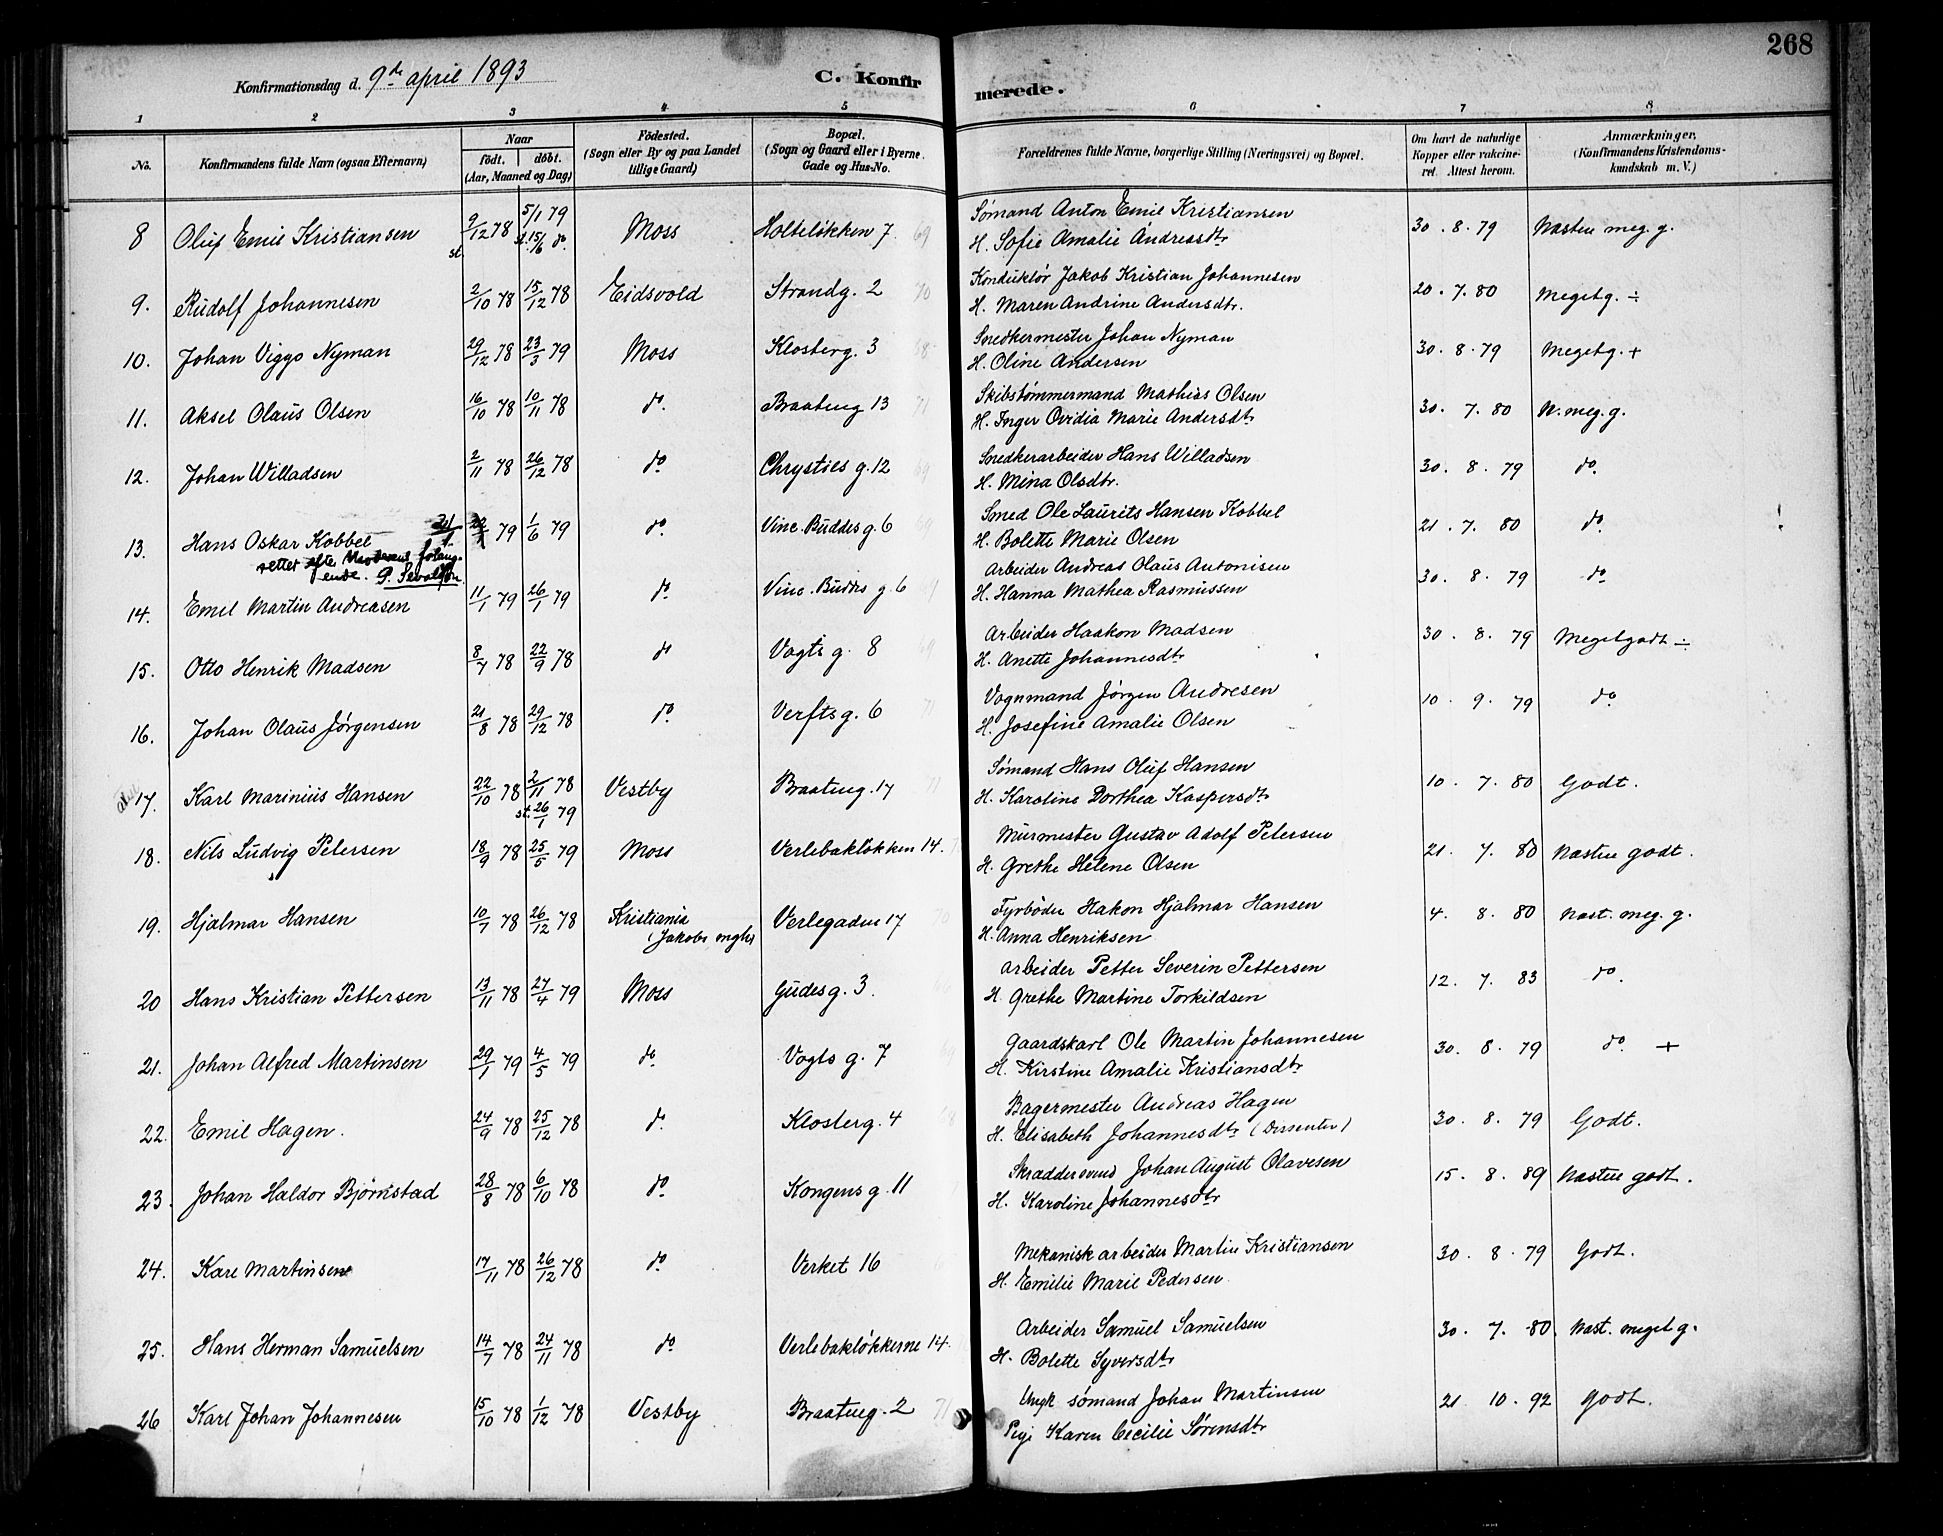 268
Konfirmationsdag d. 9de april 1893 C. Konfirmerede.
1 2 3 4 5 6 7 8
No. Konfirmandens fulde Navn (ogsaa Efternavn) Naar født. døbt. (Aar, Maaned og Dag) Fødested. (Sogn eller By og paa Landet tillige Gaard) Bopæl. (Sogn og Gaard eller i Byerne Gade og Hus-No. Forældrenes fulde Navne, borgerlige Stilling (Næringsvei) og Bopæl. Om havt de naturlige Kopper eller vakcineret. Attest herom. Anmærkninger, (Konfirmandens Kristendomskundskab m. V.)
8 Oluf Emil Kristiansen 9/12 78 5/1 79 st. st. 15/6 do. Moss Holteløkken 7 69 Sømand Anton Emil Kristiansen
H. Sofie Amalie Andreasdtr 30. 8. 79 Næsten meg. g.
9. Rudolf Johannesen 2/10 78 15/12 78 Eidsvold Strandg. 2 70 Konduktør Jakob Kristian Johannesen
H. Maren Andrine Andersdtr. 20. 7. 80 Megetg. ÷
10. Johan Viggo Nyman 29/12 78 23/3 79 Moss Klosterg. 3 68 Snedkermester Johan Nyman
H. Oline Andersen 30. 8. 79 Megetg. +
11. Aksel Olaus Olsen 16/10 78 10/11 78 do. Braateng 13 71 Skibstømmermand Mathias Olsen
H. Inger Ovidia Marie Andersdtr 30. 7. 80 N. meg. g.
12. Johan Willadsen 2/11 78 26/12 78 do Chrysties g. 12 69 Snedkerarbeider Hans Willadsen
H. Mina Olsdtr. 30. 8. 79 do.
13. Hans Oskar Kobbel 79 1/6 79 do. Vinc. Buddes g. 6 Smed Ole Laurits Hansen Kobbel
rettet efter Moderens
H. Bolette Marie Olsen 21. 7. 80 do.
14. Emil Martin Andreasen 11/1 79 26/1 79 do. Vinc. Buddes g. 6 Arbeider Andreas Olaus Antonisen
H. Hanna Mathea Rasmussen 30. 8. 79 do
15. Otto Henrik Madsen 8/7 78 22/9 78 do Vogts g. 8 69 Arbeider Haakon Madsen
H. Anette Johannesdtr 30. 8. 79 Megetgodt ÷
16. Johan Olaus Jørgensen 21/8 78 29/12 78 do. Verftsg. 6 71 Vognmand Jørgen Andresen
H. Josefine Amalie Olsen 10. 9. 79 do
17. Karl Marinius Hansen 22/10 78 2/11 78 st. 26/1 79 Vestby Braateng. 17 71 Sømand Hans Oluf Hansen
H. Karoline Dorthea Kaspersdtr 10. 7. 80 Godt.
18. Nils Ludvig Petersen 18/9 78 25/5 79 Moss Verlebakløkken 14. Murmester Gustav Adolf Petersen
H. Grethe Helene Olsen 21. 7. 80 Næsten godt.
19. Hjalmar Hansen 10/7 78 26/12 78 Kristiania (Jakobs mgh) Verlegaden 17 70 Fyrbøder Hakon Hjalmar Hansen
H. Anna Henriksen 4. 8. 80 Næst. meg. g.
20 Hans Kristian Pettersen 13/11 78 27/4 79 Moss Gudesg. 3. Arbeider Petter Severin Pettersen
H. Grethe Martine Torkildsen 12. 7. 83 do.
21. Johan Alfred Martinsen 29/1 79 4/5 79 do. Vogts g. 7 69 Gaardskarl Ole Martin Johannesen
H. Kirstine Amalie Kristiansdtr 30. 8. 79 do. +
22. Emil Hagen. 24/9 78 25/12 78 do. Klosterg. 4 68 Bagermester Andreas Hagen
H. Elisabeth Johannesdtr (Dissenter) 30. 8. 79 Godt.
23. Johan Haldor Bjørnstad 28/8 78 6/10 78 do. Kongensg. 11 Skræddersvend Johan August Olavesen
H. Karoline Johannesdtr 15. 8. 89 Næsten godt.
24. Karl Martinsen 17/11 78 26/12 78 do. Verket 16 Mekanisk arbeider Martin Kristiansen
H. Emilie Marie Pedersen 30. 8. 79 Godt.
25. Hans Herman Samuelsen 14/7 78 24/11 78 do. Verlebakløkkerne 14. Arbeider Samuel Samuelsen
H. Bolette Syversdtr 30. 7. 80. Næst. meget g.
26 Karl Johan Johannesen 15/10 78 1/12 78 Vestby Braateng. 2 71 Ungk sømand Johan Martinsen
Pige Karen Cecilie Sørensdtr 21 10. 92 Godt.